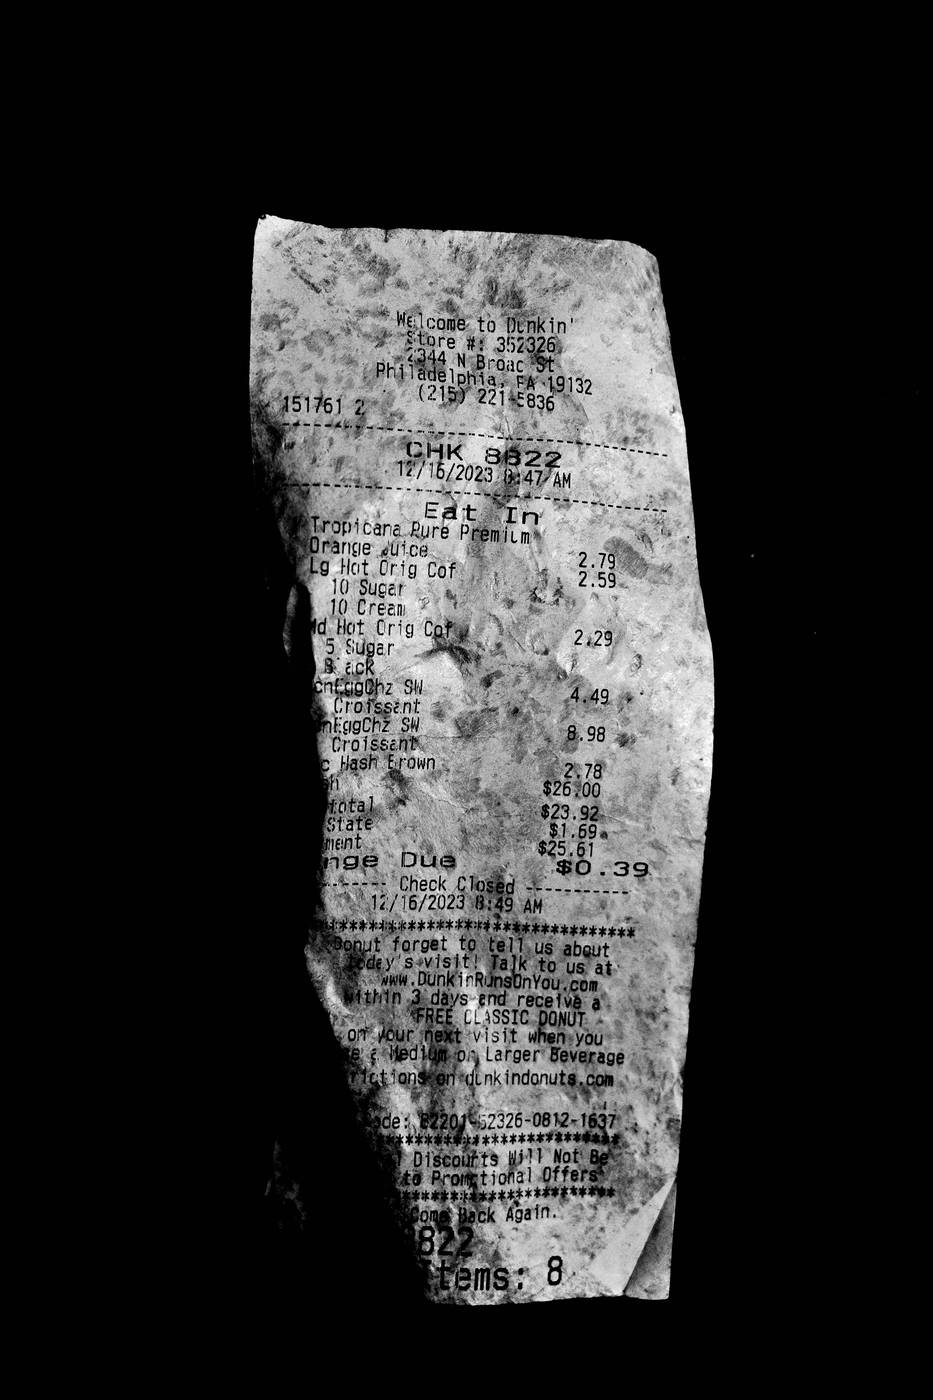 Welcome to Dunkin'
Store #: 352326
2344 N Broad St
Philadelphia, PA 19132
(215) 221-5836
151761 2
CHK 8822
12/16/2023 8:47 AM
Eat In
Tropicana Pure Premium
Orange Juice 2.79
Lg Hot Orig Cof 2.59
10 Sugar
10 Cream
Md Hot Orig Cof 2.29
5 Sugar
Black
cnEggChz SW 4.49
Croissant
nEggChz SW 8.98
Croissant
c Hash Brown 2.78
sh $26.00
total $23.92
State $1.69
ment $25.61
nge Due $0.39
-------- Check Closed ------------
12/16/2023 8:49 AM
**********************************
Donut forget to tell us about
today's visit! Talk to us at
www.DunkinRunsOnYou.com
within 3 days and receive a
FREE CLASSIC DONUT
on your next visit when you
se a Medium or Larger Beverage
rictions on dunkindonuts.com
ode: 82201-52326-0812-1637
**************************
Discounts Will Not Be
to Promotional Offers
************************
Come Back Again.
822
Items: 8